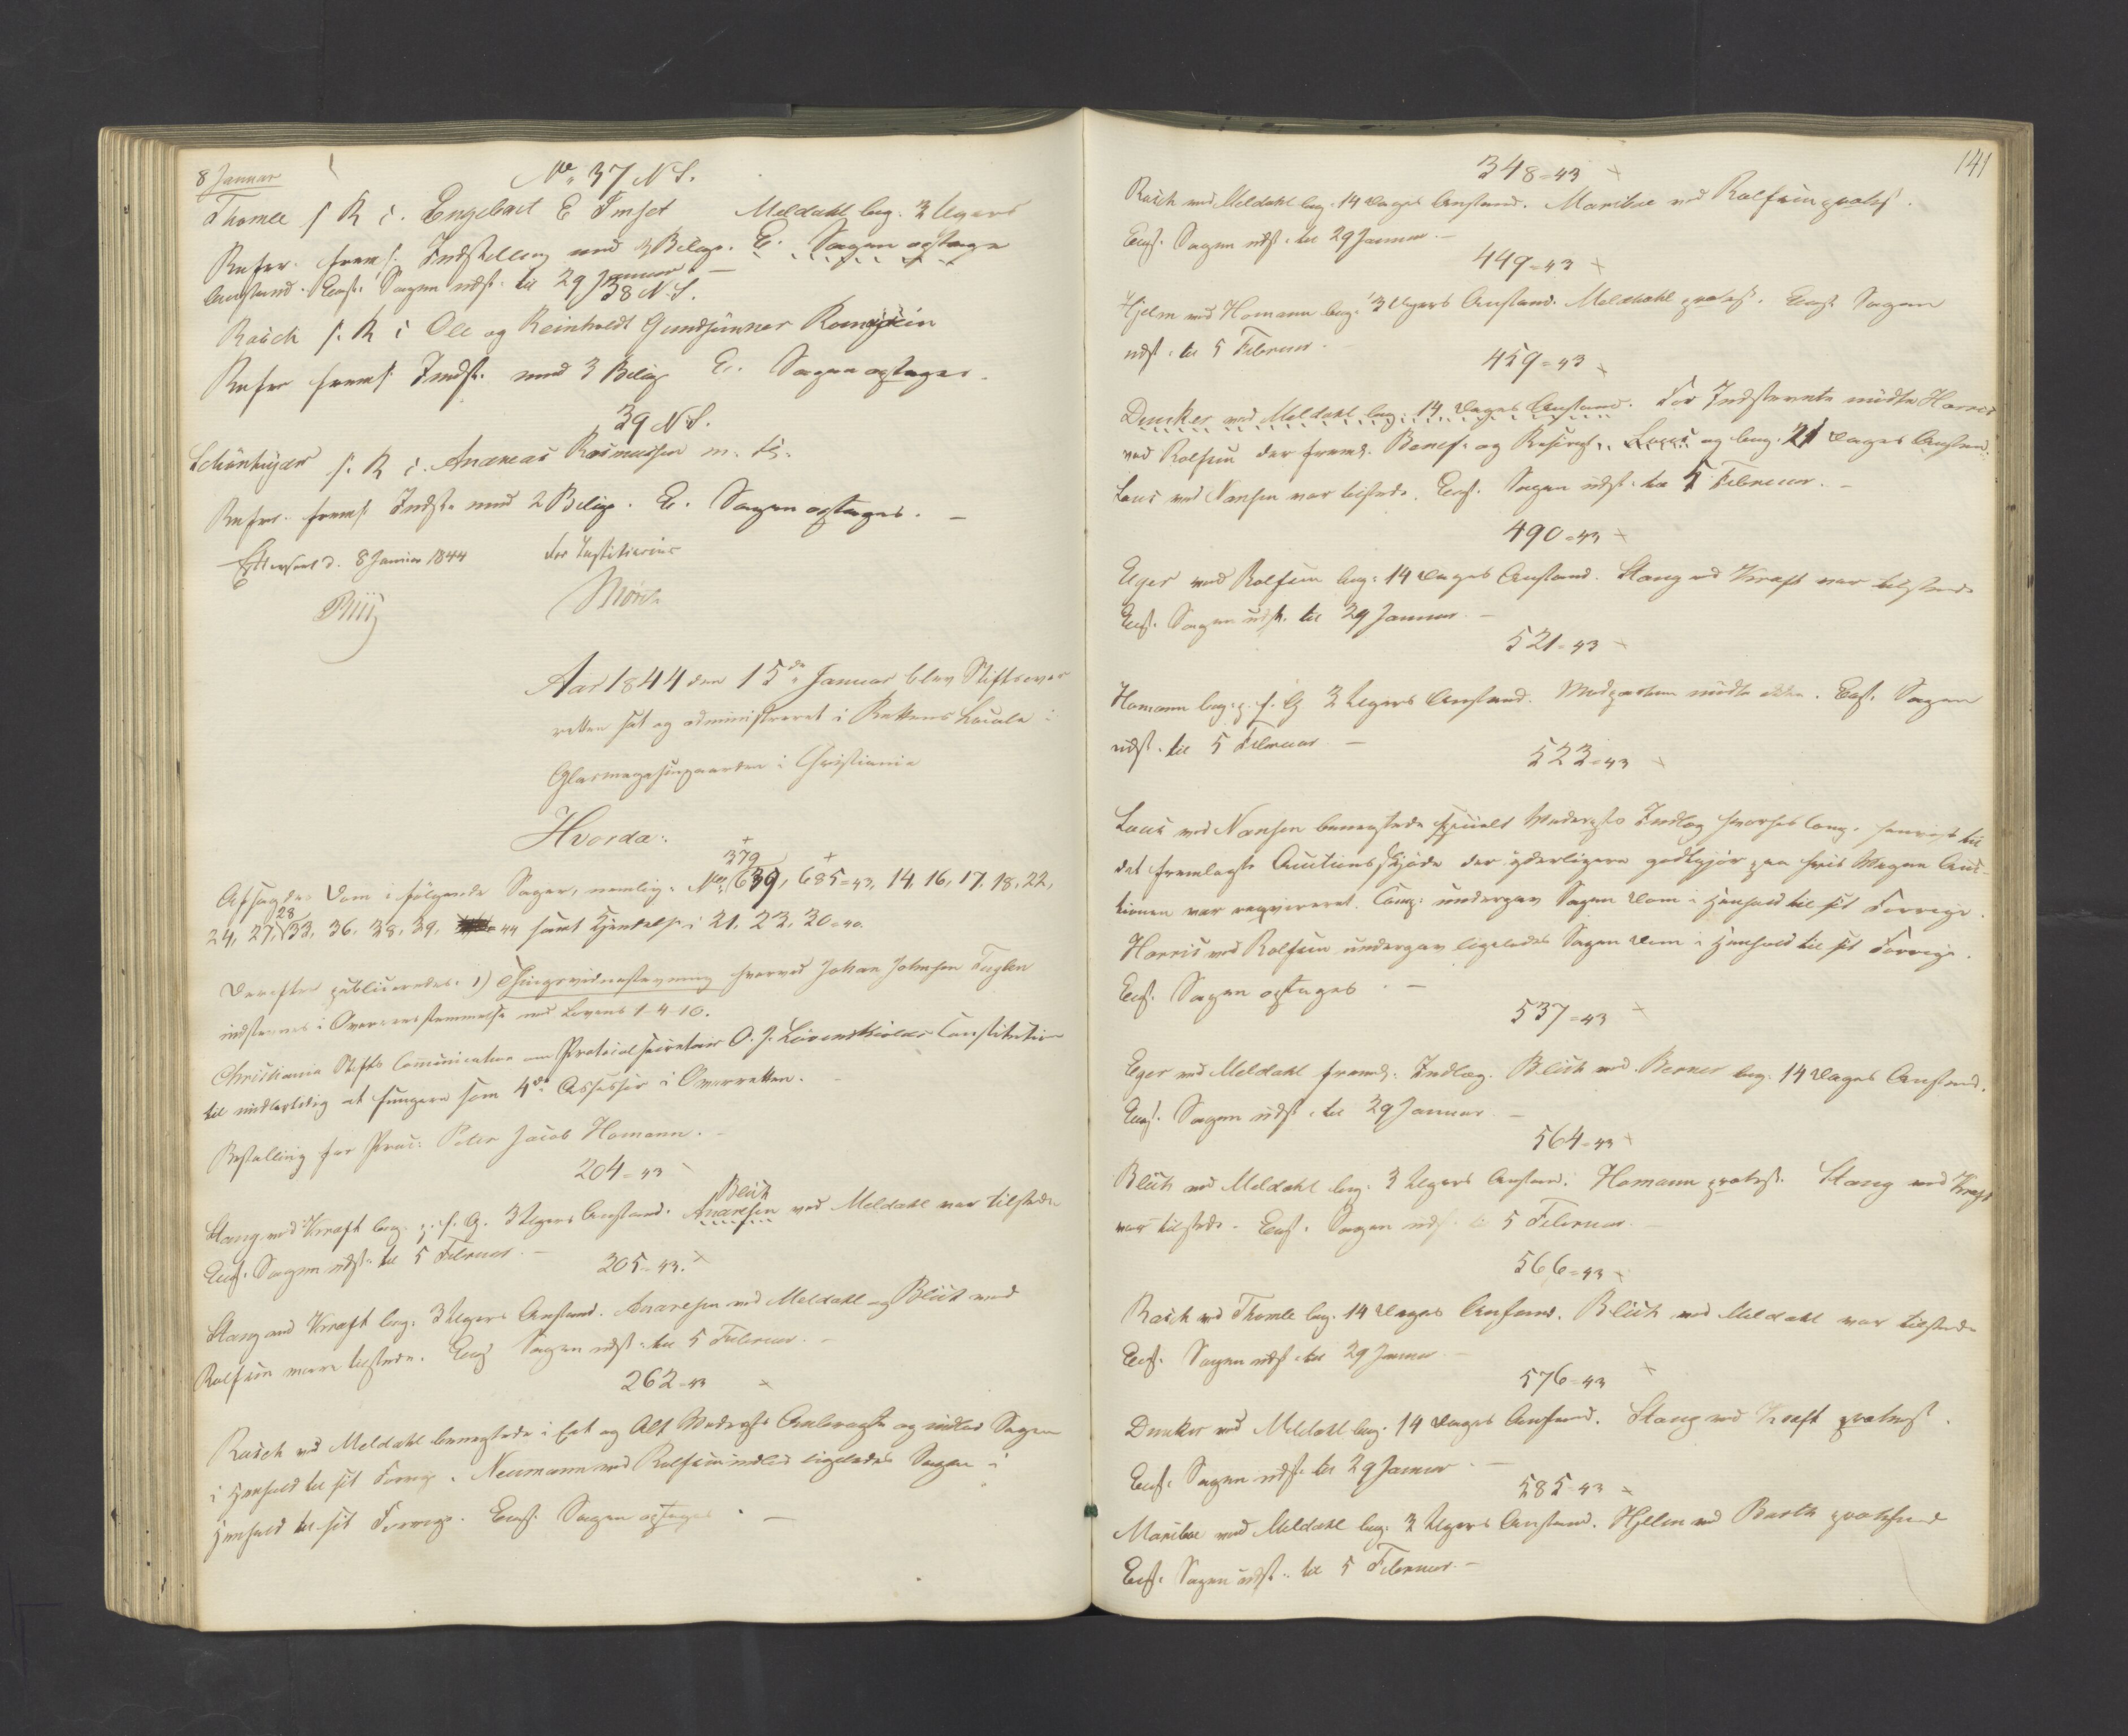 8 Januar
No. 37 N.S.
Thomle f. R. c. Engebret E Imset Meldahl beg. 3 Ugers
Refer. frems. Indstilling med 4 Bilage. E. Sagen optages
Anstand. Eragt. Sagen udst. til 29 Januar. –
38 N.S.
Rasch f. R. c Ole og Reinholdt Gundsønner
Refer frems. Indst. med 3 Bilag E. Sagen optages.
39 N.S.
f. R. c. Andreas Rasmussen m. fl.
Refer. frems. Indst. med 2 Bilage. E. Sagen optages. –
d. 8 Januar 1844 for Justitiarius
Mørch
Aar 1844 den 15de Januar blev Stiftsover
retten sat og administreret i Rettens Locale i
Glasmagasingaarden i Christiania
Hvorda:
379
Afsagdes Dom i følgende Sager, nemlig: No. 639, 685=43, 14, 16, 17, 18, 22,
28
24, 27, 33, 36, 38, 39, 44 samt Kjendelse i 21, 23, 30=40.
Derefter publiceredes: 1) Thingsvidnestevning hvorved Johan Johnsen Fuglen
indstevnes i Overeensstemmelse med Lovens 1-4-10.
Christiania Stifts Communication om Protocolsecretair O. J. Løvenskiolds Constitution
til midlertidig at fungere som 4de Assessor i Overretten.
Bestalling for Proc: Peter Jacob Homann. –
204=43
Blich
Stang med Kraft beg. p. f. G. 3 Ugers Anstand. Anaresen ved Meldahl var tilstede
Eragt. Sagen udst. til 5 Februar. –
205=43. x
Stang ved Kraft beg: 3 Ugers Anstand. Anaresen ved Meldahl og Blich ved
Rolfsen vare tilstede. Eragt Sagen udst. til 5 Februar. –
262=43 x
Rasch ved Meldahl benegtede i Eet og Alt Modp. Anbragte og indlod Sagen
i Henhold til sit Forrige. Neumann ved Rolfsen indlod ligeledes Sagen i
Henhold til sit Forrige. Eragt. Sagen optages. –
141
348=43 x
Rasch ved Meldahl beg. 14 Dages Anstand. Mariboe ved Rolfsen protest.
Eragt. Sagen udst. til 29 Januar. –
449=43 x
Hjelm ved Homann beg. 3 Ugers Anstand. Meldahl protest. Eragt Sagen
udst. til 5 Februar.
459=43 x
Dunker ved Meldahl beg. 14 Dages Anstand. For Indstevnte mødte Harris
ved Rolfsen der fremd. Benef. og og beg. 21 Dages Anstand.
Lous ved Nansen var tilstede. Eragt. Sagen udst. til 5 Februar. –
490=43 x
Eger ved Rolfsen beg: 14 Dages Anstand. Stang ved Kraft var tilstede
Eragt. Sagen udst. til 29 Januar. –
521=43 x
Homann beg. p. f. G 3 Ugers Anstand. Modparten mødte ikke. Eragt. Sagen
udst. til 5 Februar –
523=43 x
Lous ved Nansen benegtede Modp. Indlæg til
det fremlagte Auctionsskjøde der yderligere godtgjør paa hvis Vegne Auc-
tionen var reqvireret. Comp: undergav Sagen Dom i Henhold til sit Forrige.
Harris ved Rolfsen undergav ligeledes Sagen Dom i Henhold til sit Forrige.
Eragt. Sagen optages. –
537=43 x
Eger ved Meldahl fremd. Indlæg. Blich ved Berner beg. 14 Dages Anstand.
Eragt. Sagen udst. til 29 Januar –
564=43 x
Blich ved Meldahl beg. 3 Ugers Anstand. Homann protest. Stang ved Kraft
var tilstede. Eragt. Sagen udst. til 5 Februar. –
566=43 x
Rasch ved Thomle beg. 14 Dages Anstand. Blich ved Meldahl var tilstede
Eragt. Sagen udst. til 29 Januar –
576=43 x
Dunker ved Meldahl beg. 14 Dages Anstand. Stang ved Kraft protest.
Eragt. Sagen udst. til 29 Januar. –
585=43 x
Mariboe ved Meldahl beg. 3 Ugers Anstand. Hjelm ved Barth
Eragt. Sagen udst. til 5 Februar. –